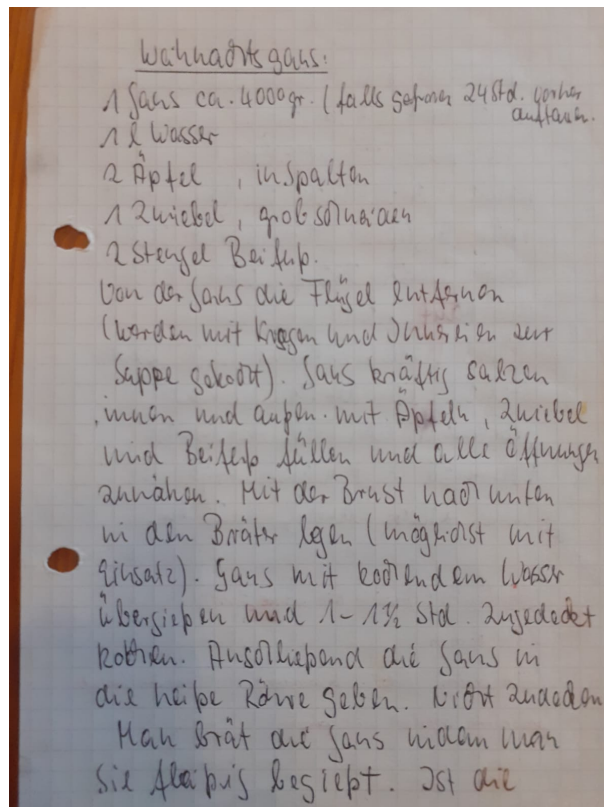 Weihnachtsgans:
1 Gans ca. 4000 gr. (falls gefroren 24 Std. vorher
auftauen.
1 l Wasser
2 Äpfel, in Spalten
1 Zwiebel, grob schneiden
2 Stengel Beifuß.
Von der Gans die Flügel entfernen
(werden mit Kragen und Innereien zur
Suppe gekocht). Gans kräftig salzen
, innen und außen. mit Äpfeln, Zwiebel
und Beifuß füllen und alle Öffnungen
zunähen. Mit der Brust nach unten
in den Bräter legen (möglichst mit
Einsatz). Gans mit kochendem Wasser
übergießen und 1 - 1 1/2 Std. zugedeckt
kochen. Anschließend die Gans in
die heiße Röhre geben. Nicht zudecken
Man brät die Gans indem man
sie fleißig begießt. Ist die